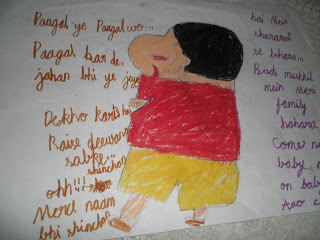 Paagal ye Paagal wo...
Paagal kar de,
jahan bhi ye jaye
Dekho karta hai
Kaise deewana
sabke... shinchan
ohh!!!
Mera naam
bhi shinchan
hai Mein
shararat
se bhara...
Badi mushkil
mein meri
family
bahara
Comes no
baby,
on bab